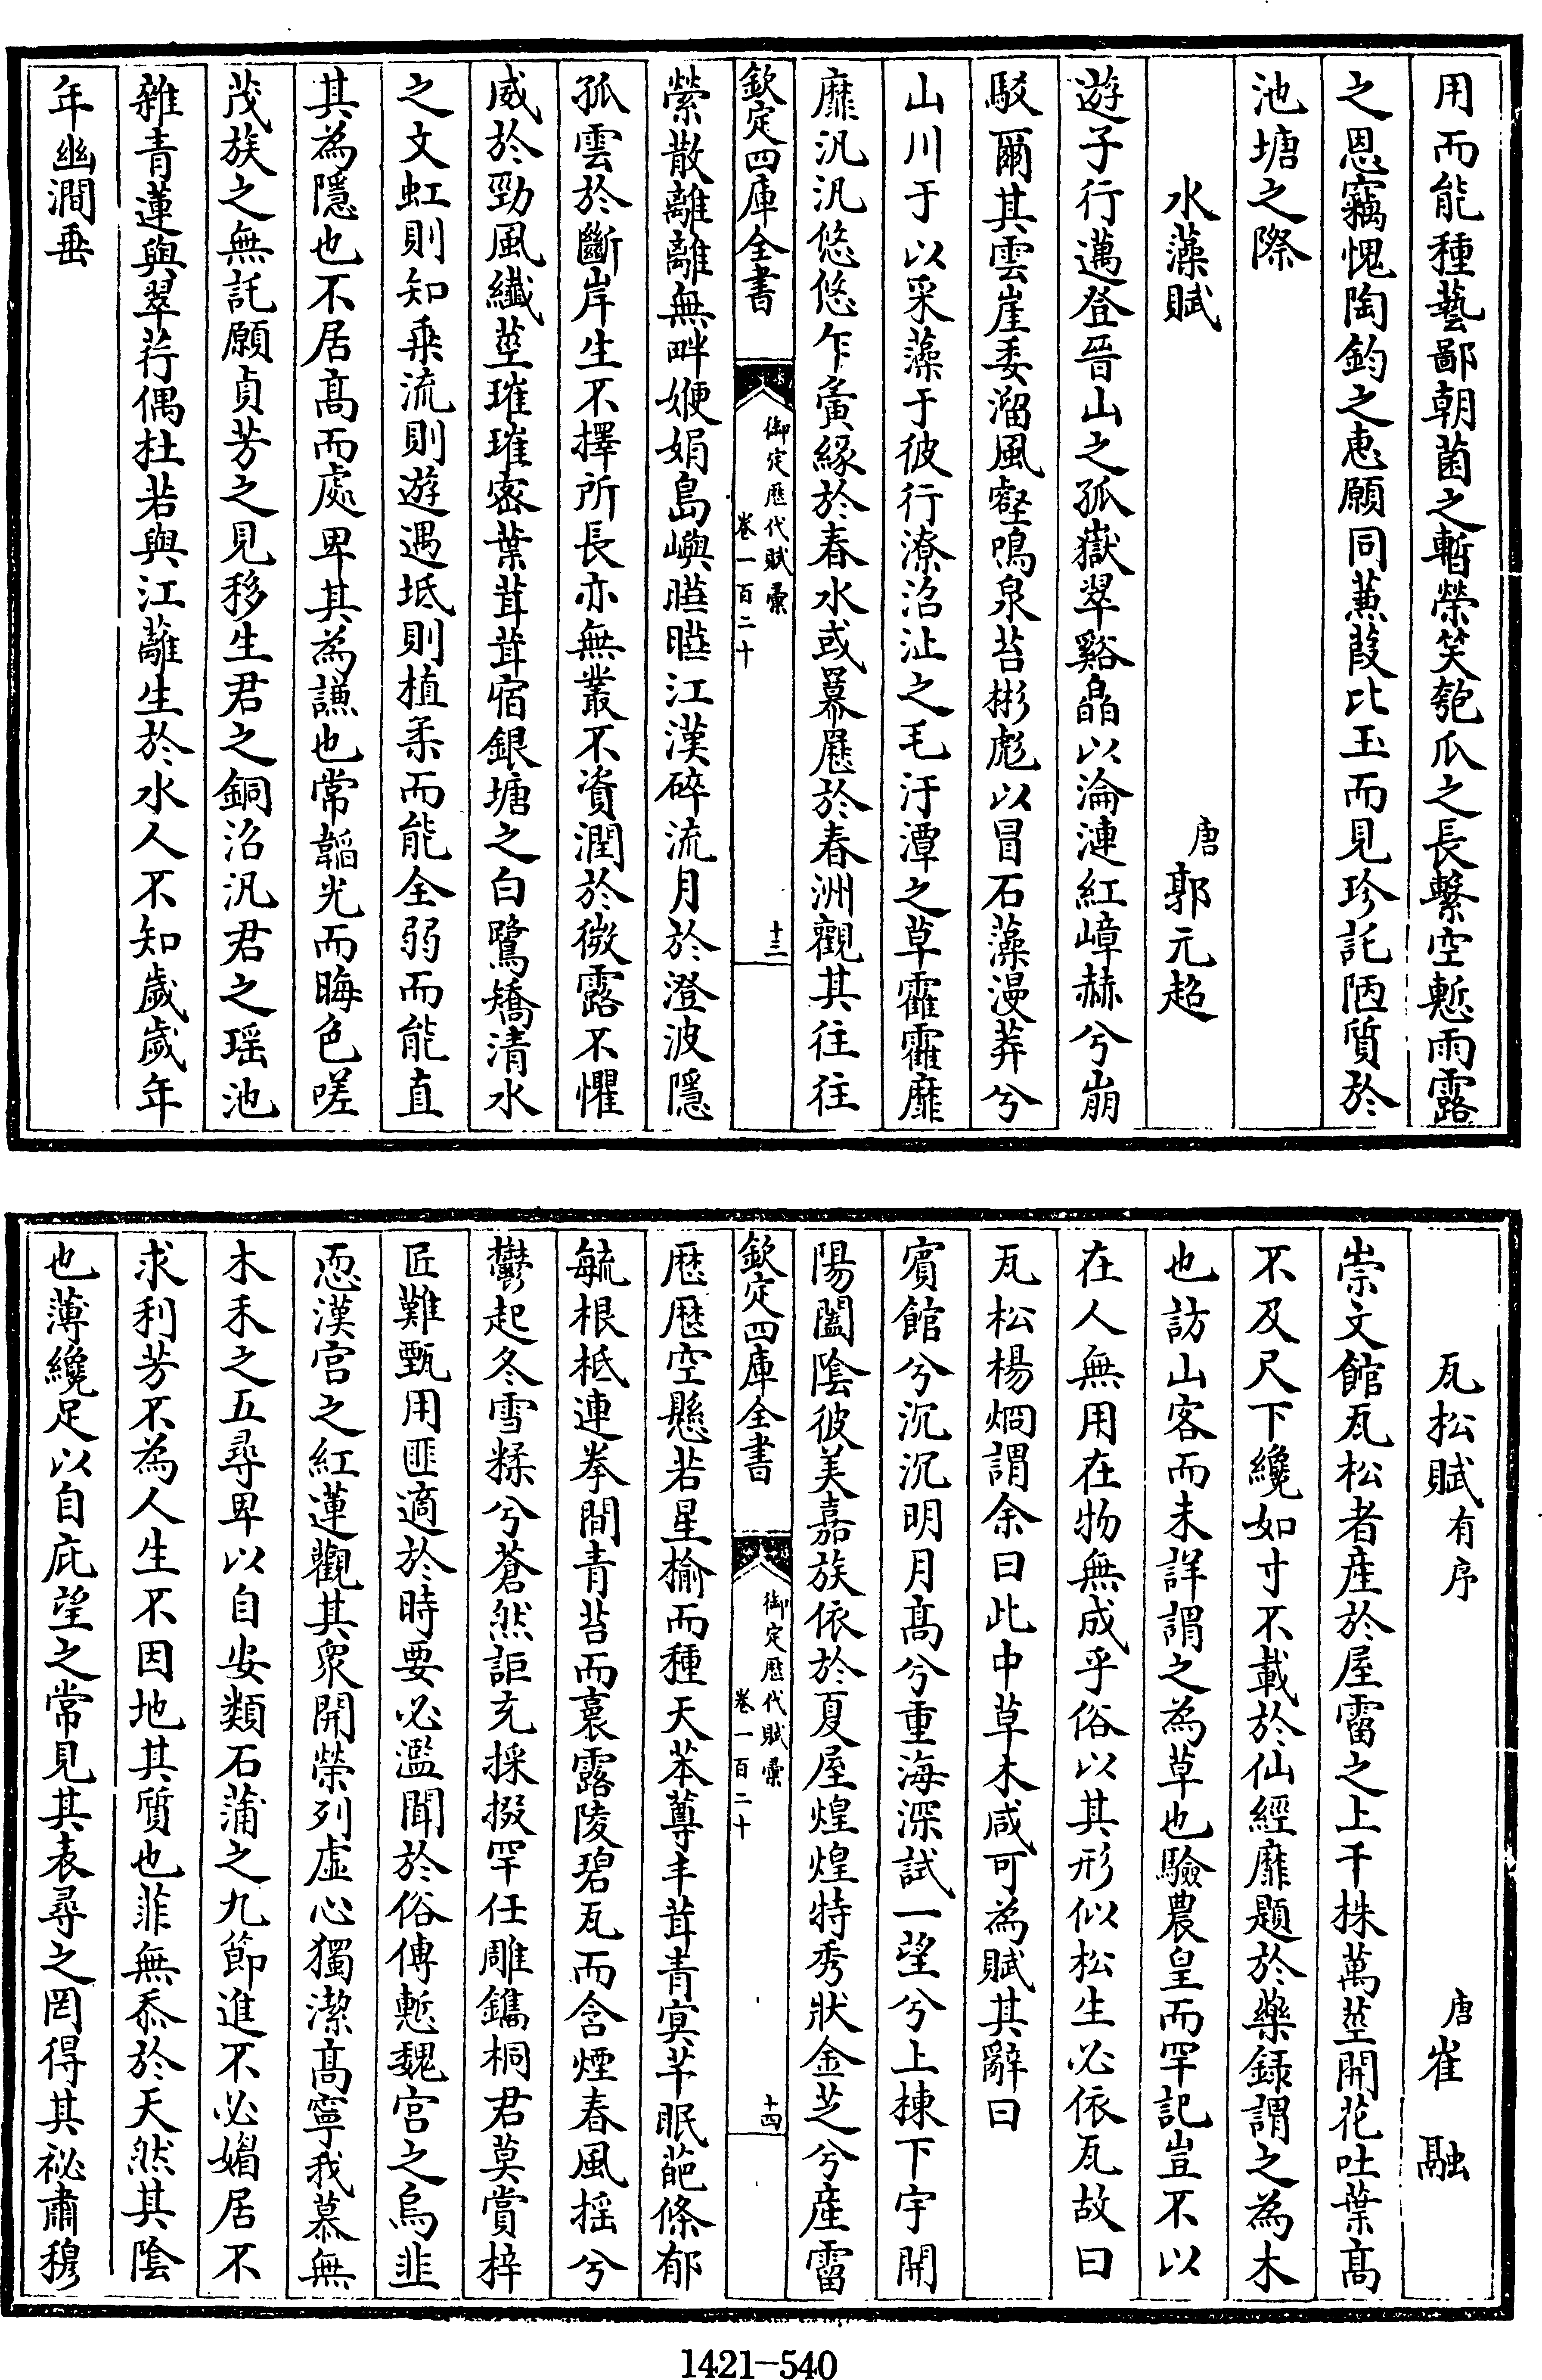 用而能種藝鄙朝菌之暫榮笑匏瓜之長繫空慙雨露
之恩竊愧陶鈞之恵願同蒹葭比玉而見珍託陋質於
池塘之際
水藻賦
唐郭元超
遊子行邁登晉山之孤嶽翠谿皛以淪漣紅嶂赫兮崩
駁爾其雲崖委溜風壑鳴泉苔彬彪以冒石藻漫莽兮
山川于以采藻于彼行潦沼沚之毛汙潭之草靃靃靡
靡汎汎悠悠乍夤緣於春水或羃歴於春洲觀其往往
欽定四庫全書
御定歴代賦彙
卷一百二十
十三
縈散離離無畔㛹娟島嶼曀曀江漢碎流月於澄波隱
孤雲於斷岸生不擇所長亦無叢不資潤於微露不懼
威於勁風纎莖璀璀宻葉茸茸宿銀塘之白鷺矯清水
之文虹則知乗流則遊遇坻則植柔而能全弱而能直
其為隱也不居髙而處卑其為謙也常韜光而晦色嗟
茂族之無託願貞芳之見移生君之銅沼汎君之瑶池
雜青蓮與翠荇偶杜若與江蘺生於水人不知歲歲年
年幽澗垂
瓦松賦有序
唐崔融
崇文館瓦松者産於屋霤之上千株萬莖開花吐葉髙
不及尺下纔如寸不載於仙經靡題於藥録謂之為木
也訪山客而未詳謂之為草也驗農皇而罕記豈不以
在人無用在物無成乎俗以其形似松生必依瓦故曰
瓦松楊炯謂余曰此中草木咸可為賦其辭曰
賓館兮沉沉明月髙兮重海深試一望兮上棟下宇開
陽闔陰彼美嘉族依於夏屋煌煌特秀狀金芝兮産霤
欽定四庫全書
御定歴代賦彙
卷一百二十
十四
歴歴空懸若星榆而種天苯䔿丰茸青㝠芊眠葩條郁
毓根柢連拳間青苔而裛露陵碧瓦而含煙春風揺兮
鬱起冬雪糅兮蒼然詎充採掇罕任雕鐫桐君莫賞梓
匠難甄用匪適於時要必濫聞於俗傳慙魏宫之烏韭
恧漢宫之紅蓮觀其衆開榮列虚心獨潔髙寧我慕無
木禾之五尋卑以自安類石蒲之九節進不必媚居不
求利芳不為人生不因地其質也菲無忝於天然其陰
也薄纔足以自庇望之常見其表尋之罔得其祕肅穆
1421-540